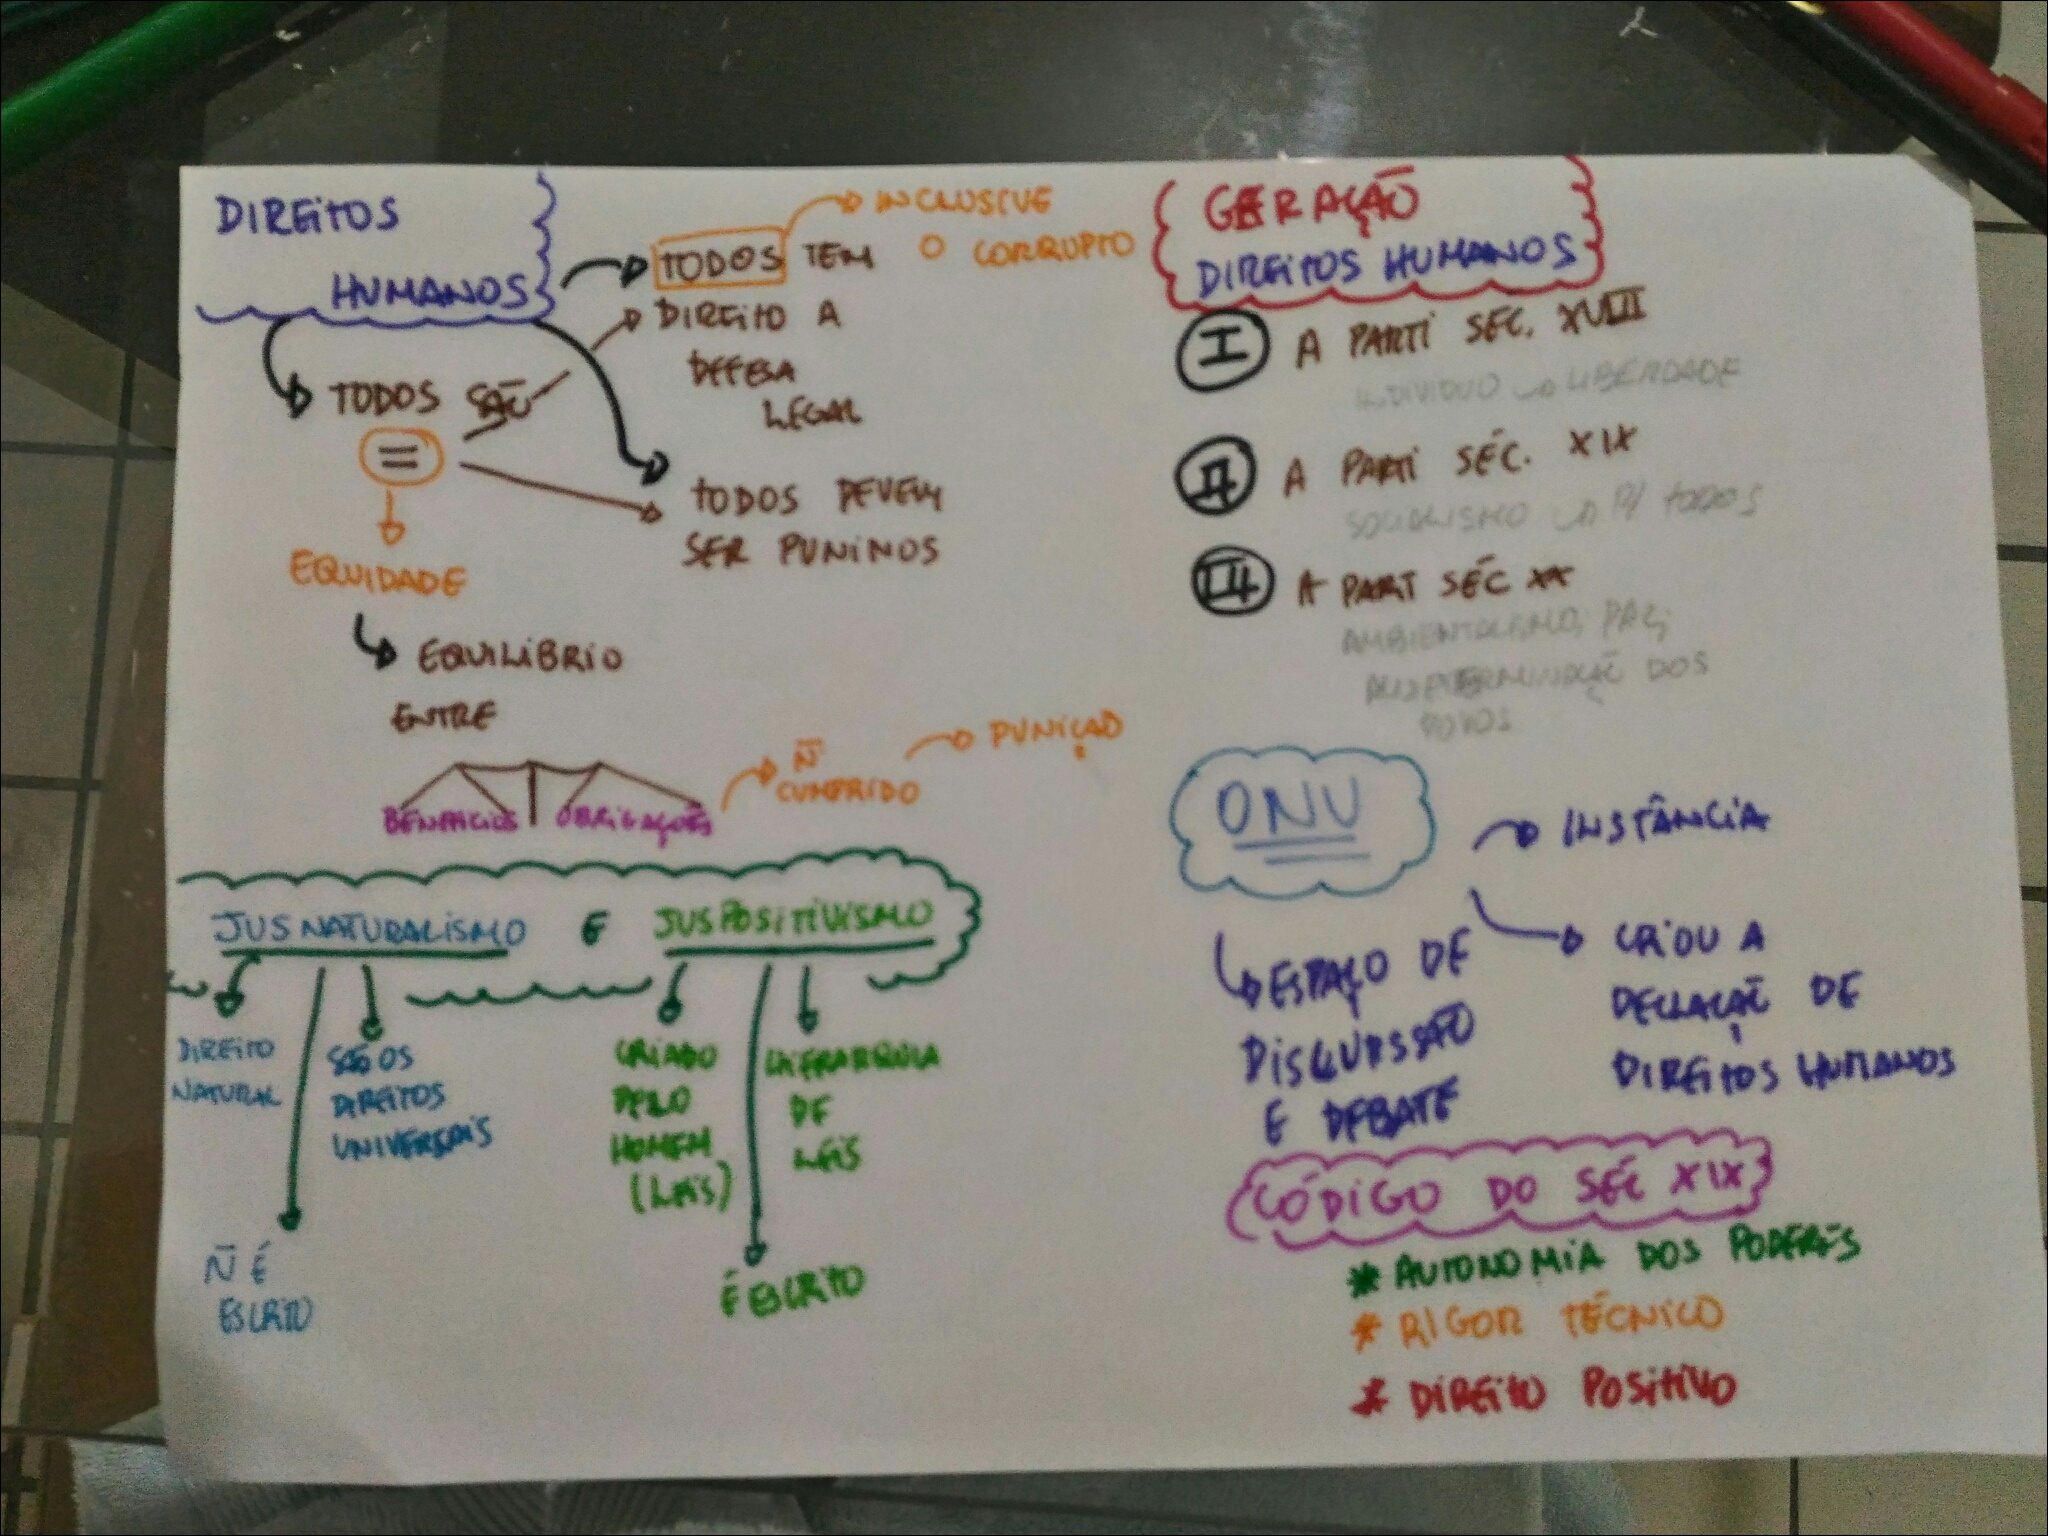 DIREITOS
HUMANOS
TODOS SÃO
=
EQUIDADE
EQUILÍBRIO
ENTRE
BENEFÍCIOS OBRIGAÇÕES
Ñ
CUMPRIDO
PUNIÇÃO
TODOS TEM
DIREITO A
DEFESA
LEGAL
INCLUSIVE
O CORRUPTO
TODOS DEVEM
SER PUNINOS
JUSNATURALISMO E JUSPOSITIVISMO
DIREITO
NATURAL
Ñ É
ESCRITO
SÃO OS
DIREITOS
UNIVERSAIS
CRIADO
PELO
HOMEM
(LEIS)
É ESCRITO
HIERARQUIA
DE
LEIS
GERAÇÃO
DIREITOS HUMANOS
I A PARTI SÉC. XVIII
INDIVIDUO LIBERDADE
II A PARTI SÉC. XIX
SOCIALISMO P/ TODOS
III A PART SÉC XX
AMBIENTALISMO; PAZ;
DOS
POVOS
ONU
INSTÂNCIA
CRIOU A
DECLAÇÃO DE
DIREITOS HUMANOS
ESPAÇO DE
DISCURSSÃO
E DEBATE
CÓDIGO DO SÉC XIX
* AUTONOMIA DOS PODERES
* RIGOR TÉCNICO
* DIREITO POSITIVO